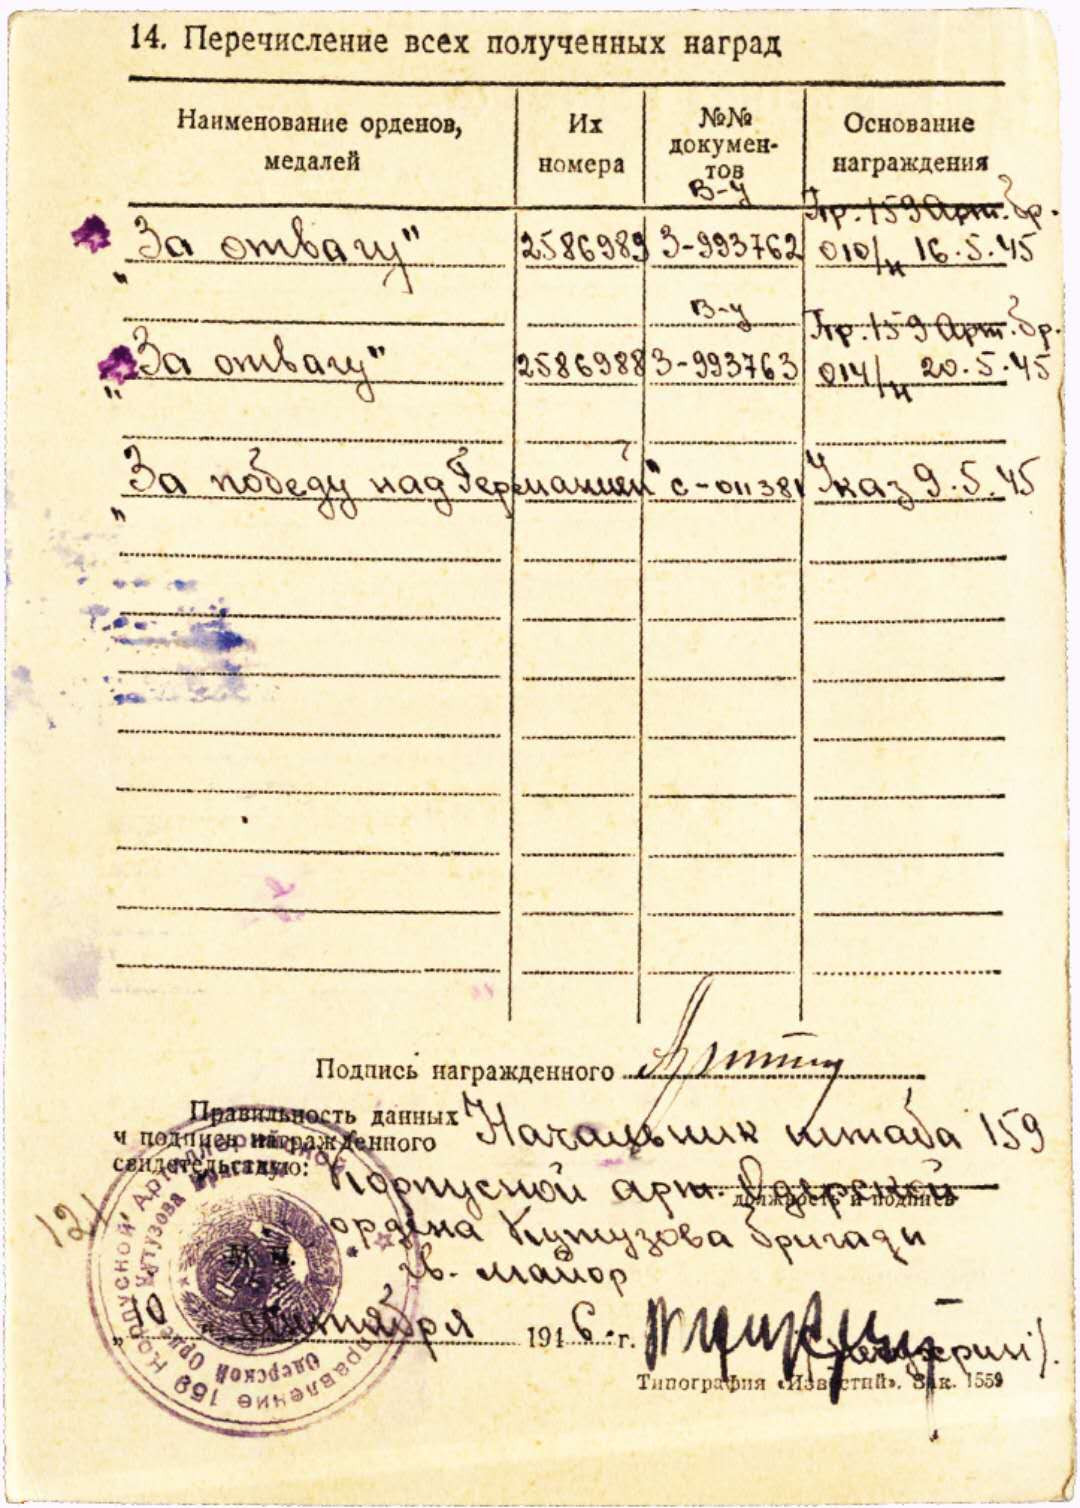 14. Перечисление всех полученных наград
Наименование орденов, медалей
Их номера
№№ докумен-тов
Основание награждения
В-у
Пр. 159 Арт. бр.
"За отвагу" 2586989 З-993762 010/н 16.5.45
В-у
Пр. 159 Арт. бр.
"За отвагу" 2586988 З-993763 014/н 20.5.45
"За победу над Германией" С-011381 Указ 9.5.45
Подпись награжденного
Правильность данных
и подпись награжденного
свидетельствую:
Начальник штаба 159
Корпусной арт. Одерской
должность и подпись
ордена Кутузова бригады
Гв. майор
М. П.
"10" сентября 1946 г.
Типография «Известий». Зак. 1559
121
Управление 159 Корпусной Артиллерийской
Одерской Ордена Кутузова Бригады